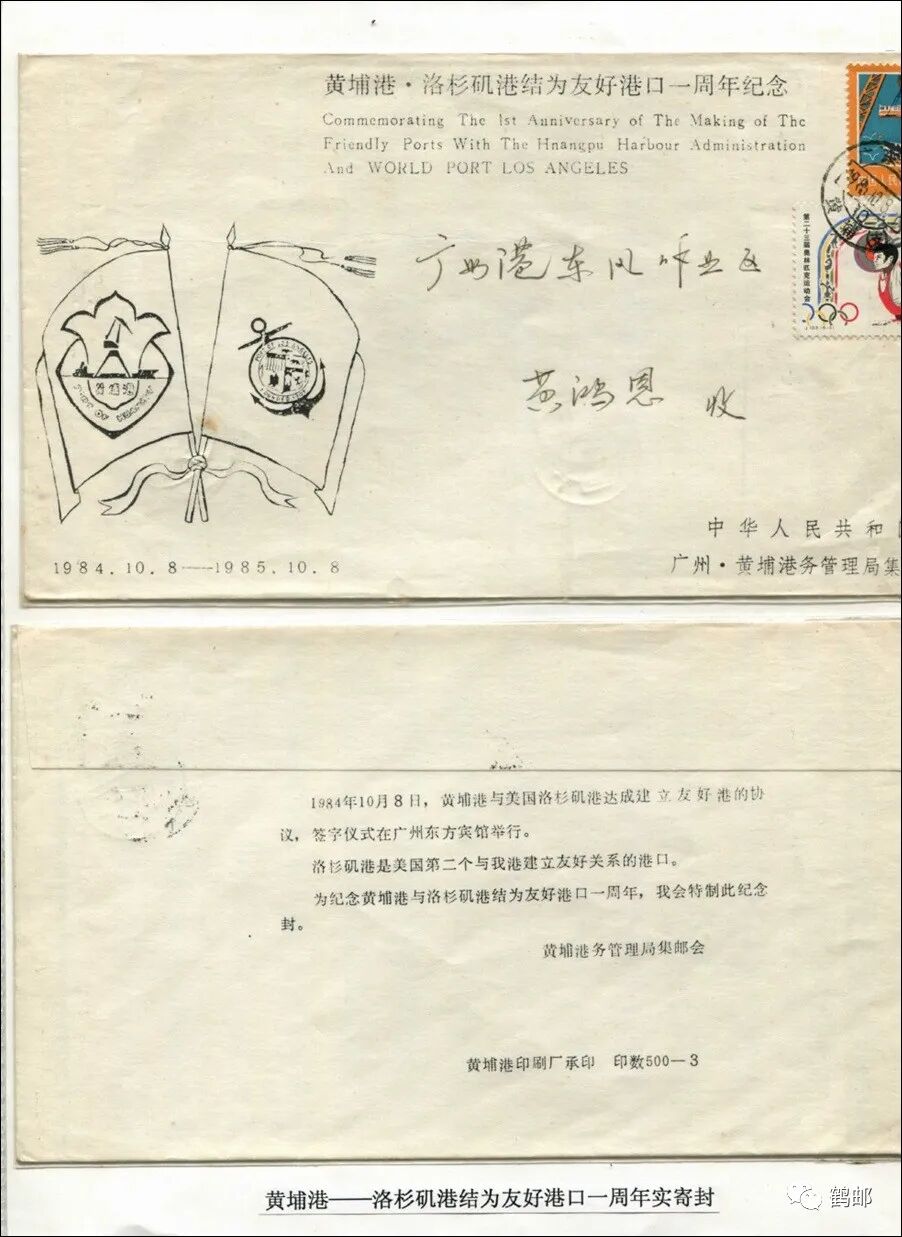 黄埔港·洛杉矶港结为友好港口一周年纪念
Commemorating The 1st Anniversary of The Making of The
Friendly Ports With The Hnangpu Harbour Administration
And WORLD PORT LOS ANGELES
第二十三届奥林匹克运动会
广州港东风作业区
黄鸿恩 收
黄埔港
1984.10.8—1985.10.8
中华人民共和
广州·黄埔港务管理局集
1984年10月8日，黄埔港与美国洛杉矶港达成建立友好港的协
议，签字仪式在广州东方宾馆举行。
洛杉矶港是美国第二个与我港建立友好关系的港口。
为纪念黄埔港与洛杉矶港结为友好港口一周年，我会特制此纪念
封。
黄埔港务管理局集邮会
黄埔港印刷厂承印 印数500—3
黄埔港——洛杉矶港结为友好港口一周年实寄封
鹤邮